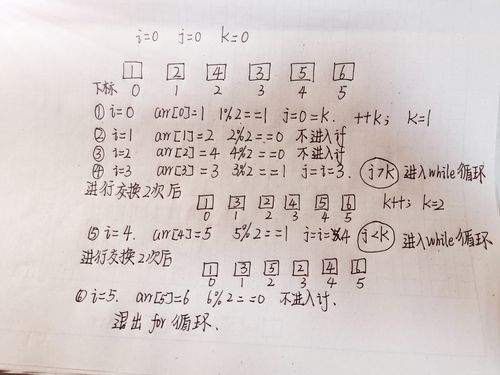 i=0 j=0 k=0
1 2 4 3 5 6
下标 0 1 2 3 4 5
① i=0 arr[0]=1 1%2==1 j=0=k. ++k; k=1
② i=1 arr[1]=2 2%2==0 不进入if
③ i=2 arr[2]=4 4%2==0 不进入if
④ i=3 arr[3]=3 3%2==1 j=i=3. j>k 进入while循环
进行交换2次后 1 3 2 4 5 6 k++; k=2
0 1 2 3 4 5
⑤ i=4. arr[4]=5 5%2==1 j=i=4 j<k 进入while循环
进行交换2次后 1 3 5 2 4 6
0 1 2 3 4 5
⑥ i=5. arr[5]=6 6%2==0 不进入if.
退出for循环.